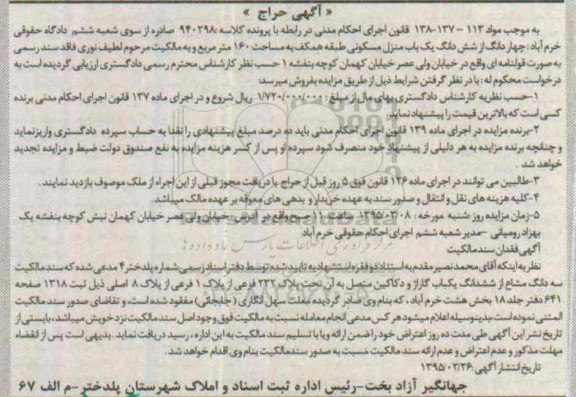 « آگهی حراج »
به موجب مواد ۱۱۳ - ۱۳۷-۱۳۸ قانون اجرای احکام مدنی در رابطه با پرونده کلاسه :۹۴۰۲۹۸ صادره از سوی شعبه ششم دادگاه حقوقی
خرم آباد : چهار دانگ از شش دانگ یک باب منزل مسکونی طبقه همکف به مساحت ۱۶۰ متر مربع و به مالکیت مرحوم لطیف نوری فاقد سند رسمی
به صورت قولنامه ای واقع در خیابان ولی عصر خیابان کهمان کوچه بنفشه ۱ حسب نظر کارشناس محترم رسمی دادگستری ارزیابی گردیده است به
درخواست محکوم له : با در نظر گرفتن شرایط ذیل از طریق مزایده بفروش میرسد:
۱-حسب نظریه کارشناس دادگستری بهای مال از مبلغ : ۱/۷۲۰/۰۰۰/۰۰۰ ریال شروع و در اجرای ماده ۱۳۷ قانون اجرای احکام مدنی برنده
کسی است که بالاترین قیمت را پیشنهاد نماید
۲-برنده مزایده در اجرای ماده ۱۳۹ قانون اجرای احکام مدنی باید ده درصد مبلغ پیشنهادی را نقدا به حساب سپرده دادگستری واریز نماید
و چنانچه برنده مزایده به هر دلیلی از پیشنهاد خود منصرف شود سپرده او پس از کسر هزینه مزایده به نفع صندوق دولت ضبط و مزایده تجدید
خواهد شد .
۳-طالبین می توانند در اجرای ماده ۱۲۶ قانون فوق ۵ روز قبل از حراج با دریافت مجوز قبلی از این اجراء از ملک موصوف بازدید نمایند .
۴-کلیه هزینه های نقل و انتقال و صدور سند به عهده خریدار و بدهی های معوقه بر عهده مالک میباشد
۵-زمان مزایده روز شنبه مورخه : ۱۳۹۵/۰۳/۰۸ ساعت ۱۱ صبح واقع در آدرس خیابان ولی عصر خیابان کهمان نبش کوچه بنفشه یک
بهزاد رومیانی -مدیر شعبه ششم اجرای احکام حقوقی خرم آباد
آگهی فقدان سند مالکیت
نظر به اینکه آقای محمد نصیر مقدم به استناد دو فقره استشهادیه تایید شده توسط دفتر اسناد رسمی شماره پلدختر۴ مدعی شده که سند مالکیت
سه دانگ مشاع از ششدانگ یکباب گاراژ و دکاکین متصل به آن تحت پلاک ۲۳۳ فرعی از پلاک ۱ فرعی از پلاک ۸ اصلی ذیل ثبت ۱۳۱۸ صفحه
۶۴۱ دفتر جلد ۱۸ بخش هشت خرم آباد ، که بنام وی صادر گردیده بعلت سهل انگاری ( جابجائی ) مفقود شده است، و تقاضای صدور سند مالکیت
المثنی نموده است بدینوسیله اعلام میشود هر کس مدعی انجام معامله نسبت به مالکیت فوق و جود اصل سند مالکیت نزد خویش میباشد ، بایستی از
تاریخ نشر این آگهی طی مدت ده روز اعتراض خود را ضمن ارائه و یا با تسلیم سند مالکیت به این اداره ، رسید دریافت نماید . بدیهی است پس از انقضاء
مهلت مذکور و عدم اعتراض و عدم ارائه سند مالکیت نسبت به صدور سند مالکیت بنام وی اقدام خواهد شد .
تاریخ انتشار آگهی :۱۳۹۵/۰۲/۲۶
جهانگیر آزاد بخت-رئیس اداره ثبت اسناد و املاک شهرستان پلدختر-م الف ۶۷